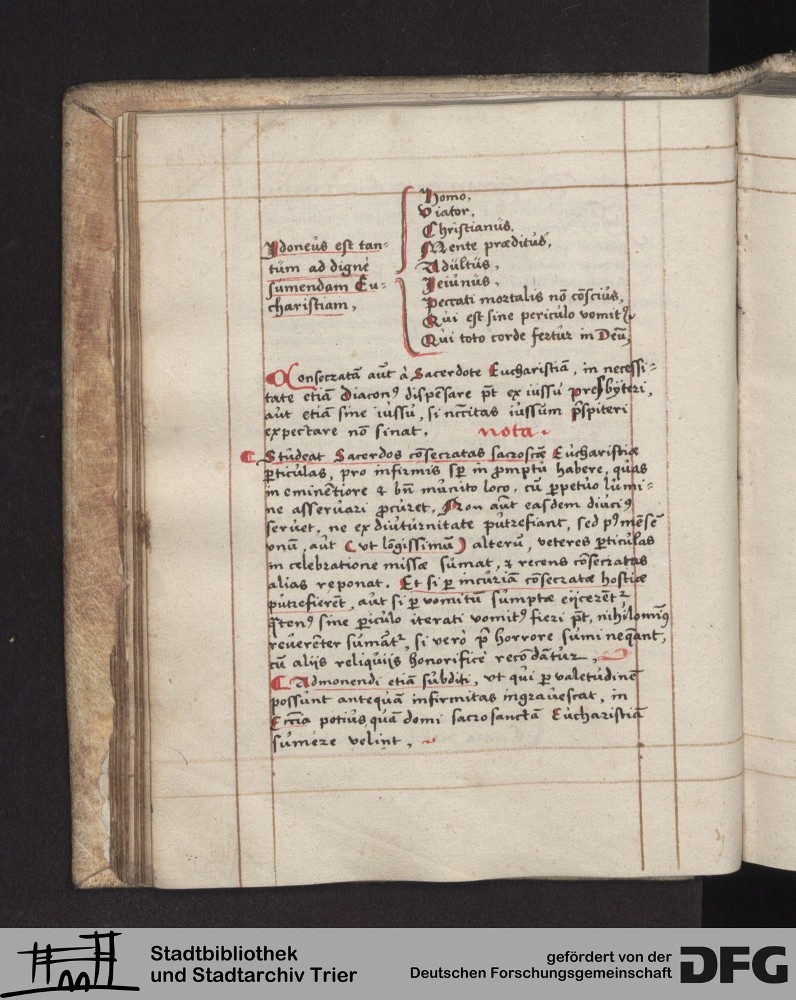 Idoneus est tan=
tum ad digné
sumendam Eu=
charistiam,
Homo,
Viator,
Christianus,
Mente præditus,
Adultus,
Ieiunus,
Peccati mortalis nō cōscius,
Qui est sine periculo vomitus,
Qui toto corde fertur in Deū,
Consecratā aūt à Sacerdote Eucharistiā, in necessi=
tate etiā Diaconꝰ dispēsare pt̄ ex iussu presbyteri,
aut etiam sine iussu, si nc̄citas iussum p̄sbiteri
expectare nō sinat. nota.
Studeat Sacerdos cōsecratas sacroscæ Eucharistiæ
ꝑticulas, pro infirmis sp̄ in promptu habere, quas
in eminētiore & bn̄ munito loco, cū ꝑpetuo lumi=
ne asseruari ꝓcuret. Non aūt easdem diuciꝰ
seruet, ne ex diuturnitate putrefiant, sed pꝰ mēsē
vnū, aut (vt lōgissimū) alterū, veteres ꝑticulas
in celebratione missæ sumat, & recens cōsecratas
alias reponat. Et si ꝑ incuriā cōsecratæ hostiæ
putrefierēt, aut si ꝑ vomitū sumptæ eijcerēt2
qtenꝰ sine ꝑiculo iterati vomitꝰ fieri pt̄, nihilominꝰ
reuerēter sumāt2, si verò p̄ horrore sumi neqāt,
cū alijs reliquijs honorificè recōdātur,
Admonendi etiā subditi, vt qui ꝑ valetudinē
possunt antequā infirmitas ingrauescat, in
Eccīa potius quā domi sacrosanctā Eucharistiā
sumere velint,
Stadtbibliothek
und Stadtarchiv Trier
gefördert von der
Deutschen Forschungsgemeinschaft
DFG